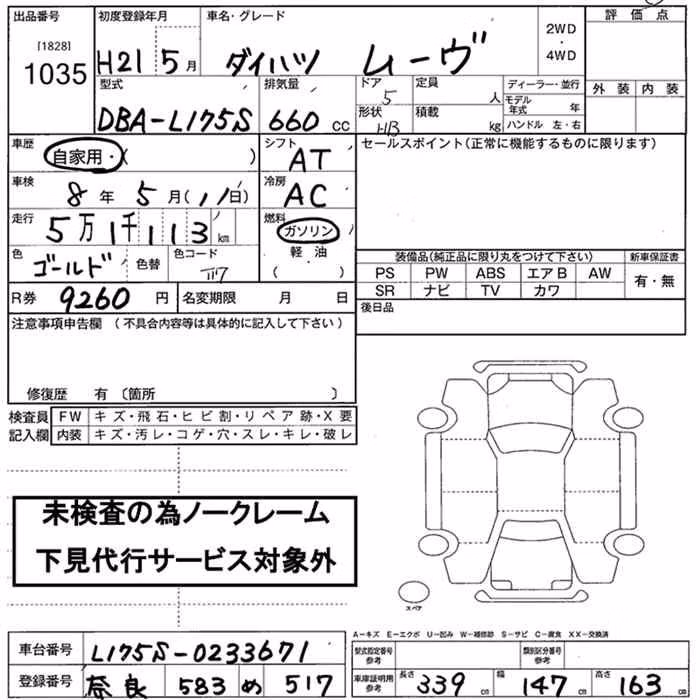 出品番号 [1828] 1035
初度登録年月 H21 5月
車名・グレード ダイハツ ムーヴ
2WD・4WD
評価点
外装 内装
型式 DBA-L175S
排気量 660 CC
ドア 5
形状 HB
定員 人
積載 kg
ディーラー・並行
モデル年式 年
ハンドル 左・右
車歴 自家用・( )
シフト AT
車検 8年 5月( 11日)
冷房 AC
走行 5万1千113 km
燃料 ガソリン
軽油
( )
色 ゴールド 色替 色コード
R券 9260 円 名変期限 月 日
セールスポイント(正常に機能するものに限ります)
装備品(純正品に限り丸をつけて下さい) 新車保証書
PS PW ABS エアB AW 有・無
SR ナビ TV カワ
後日品
注意事項申告欄 (不具合内容等は具体的に記入して下さい)
修復歴 有 〔箇所 〕
検査員記入欄
FW キズ・飛石・ヒビ割・リペア跡・X要
内装 キズ・汚レ・コゲ・穴・スレ・キレ・破レ
未検査の為ノークレーム
下見代行サービス対象外
スペア
A-キズ E-エクボ U-凹み W-補修跡 S-サビ C-腐食 XX-交換済
車台番号 L175S-0233671
登録番号 奈良 583 め 517
型式指定番号 参考
類別区分番号 参考
車庫証明用 参考 長さ 339 cm 幅 147 cm 高さ 163 cm